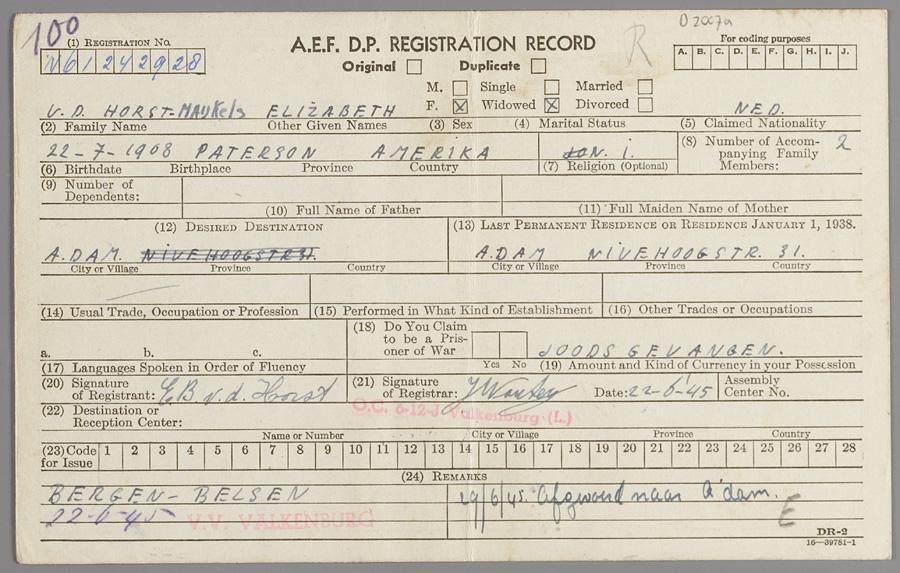 100
D 2007a
(1) REGISTRATION NO.
N61242928
A.E.F. D.P. REGISTRATION RECORD
Original Duplicate
R
For coding purposes
A. B. C. D. E. F. G. H. I. J.
M. Single Married
F. X Widowed X Divorced
V.D. HORST-MAYKELS ELIZABETH
NED.
(2) Family Name Other Given Names (3) Sex (4) Marital Status (5) Claimed Nationality
22-7-1908 PATERSON AMERIKA
N. i.
(8) Number of Accompanying Family Members: 2
(6) Birthdate Birthplace Province Country (7) Religion (Optional)
(9) Number of Dependents:
(10) Full Name of Father (11) Full Maiden Name of Mother
(12) DESIRED DESTINATION (13) LAST PERMANENT RESIDENCE OR RESIDENCE JANUARY 1, 1938.
A.DAM. NIVEHOOGSTR 31. A.DAM NIVEHOOGSTR. 31.
City or Village Province Country City or Village Province Country
(14) Usual Trade, Occupation or Profession (15) Performed in What Kind of Establishment (16) Other Trades or Occupations
(18) Do You Claim to be a Prisoner of War
a. b. c. Yes No JOODS GEVANGEN.
(17) Languages Spoken in Order of Fluency (19) Amount and Kind of Currency in your Possession
(20) Signature of Registrant: E.B v.d. Horst (21) Signature of Registrar: Date: 22-6-45 Assembly Center No.
O.C. 6-12-J Valkenburg (L.)
(22) Destination or Reception Center:
Name or Number City or Village Province Country
(23) Code for Issue 1 2 3 4 5 6 7 8 9 10 11 12 13 14 15 16 17 18 19 20 21 22 23 24 25 26 27 28
(24) REMARKS
BERGEN-BELSEN
29/6/45 Afgevoerd naar A'dam.
22-6-45 V.V. VALKENBURG
E
DR-2
16—39781-1